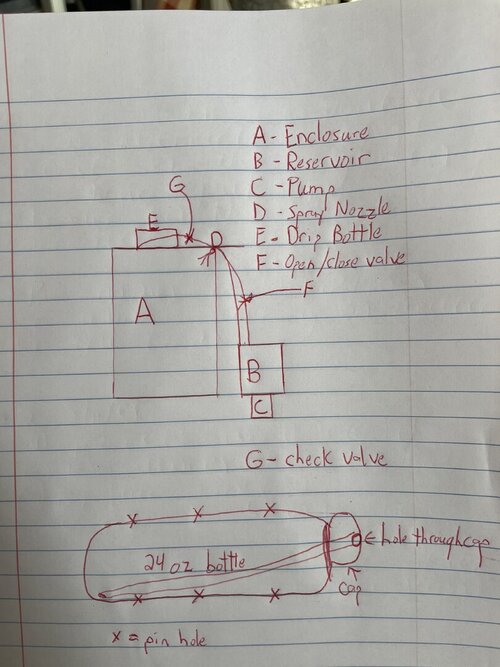 A - Enclosure
B - Reservoir
C - Pump
D - Spray Nozzle
E - Drip Bottle
F - Open/close valve
G
E
D
F
A
B
C
G - check valve
24 oz bottle
hole through cap
cap
x = pin hole